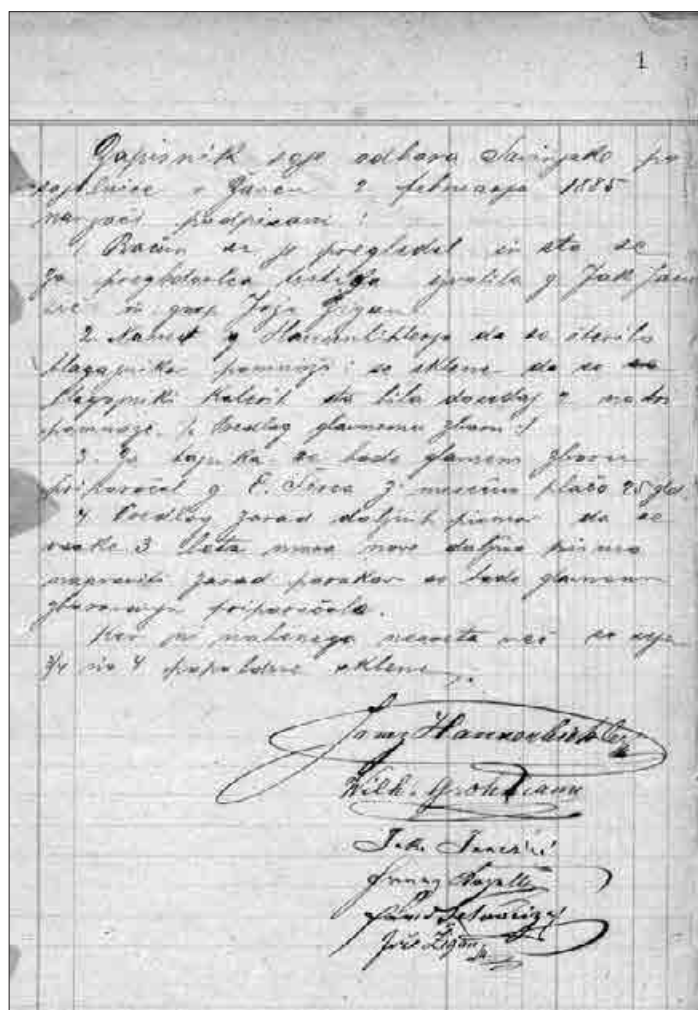 1
Zapisnik seje odbora Savinjske po
sojilnice v Žavcu 2 februarja 1885
navzoči podpisani :
1 Račun se je pregledal in sta se
za pregledovalca izvolila g. Jak Jan
in gosp Jože Žigan
2. Nasvet g Hausenbihlerja da se število
blagajnikov pomnoži; se sklene da se
blagajniki katerih sta bila dosedaj 2 na tri
pomnože. /: Predlog glavnemu zboru :/
3. Za tajnika se bode glavnem zboru
priporočal g. E. Širca z mesečno plačo 25 gld.
4 Predlog zarad dolžnih pisem da se
vsake 3 leta mora novo dolžno pismo
napraviti zarad porokov se bode glavnem
zborovanju priporočalo.
Ker ni nobenega nasveta več se seja
3/4 na 4 popoldne sklene
Janez Hausenbichler
Wilh. Grohmann
Jak. Janežič
Franz
Jože Žigan